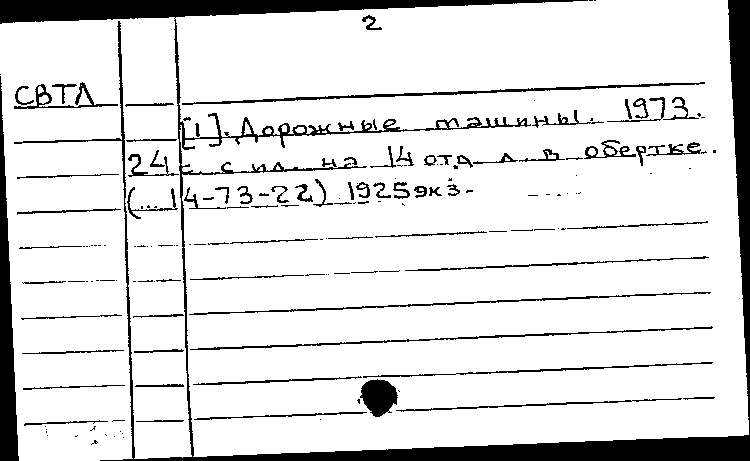 2
СВТЛ
[1]. Дорожные машины. 1973.
24 с. с ил. на 14 отд. л. в обертке.
(... 14-73-22) 1925 экз.